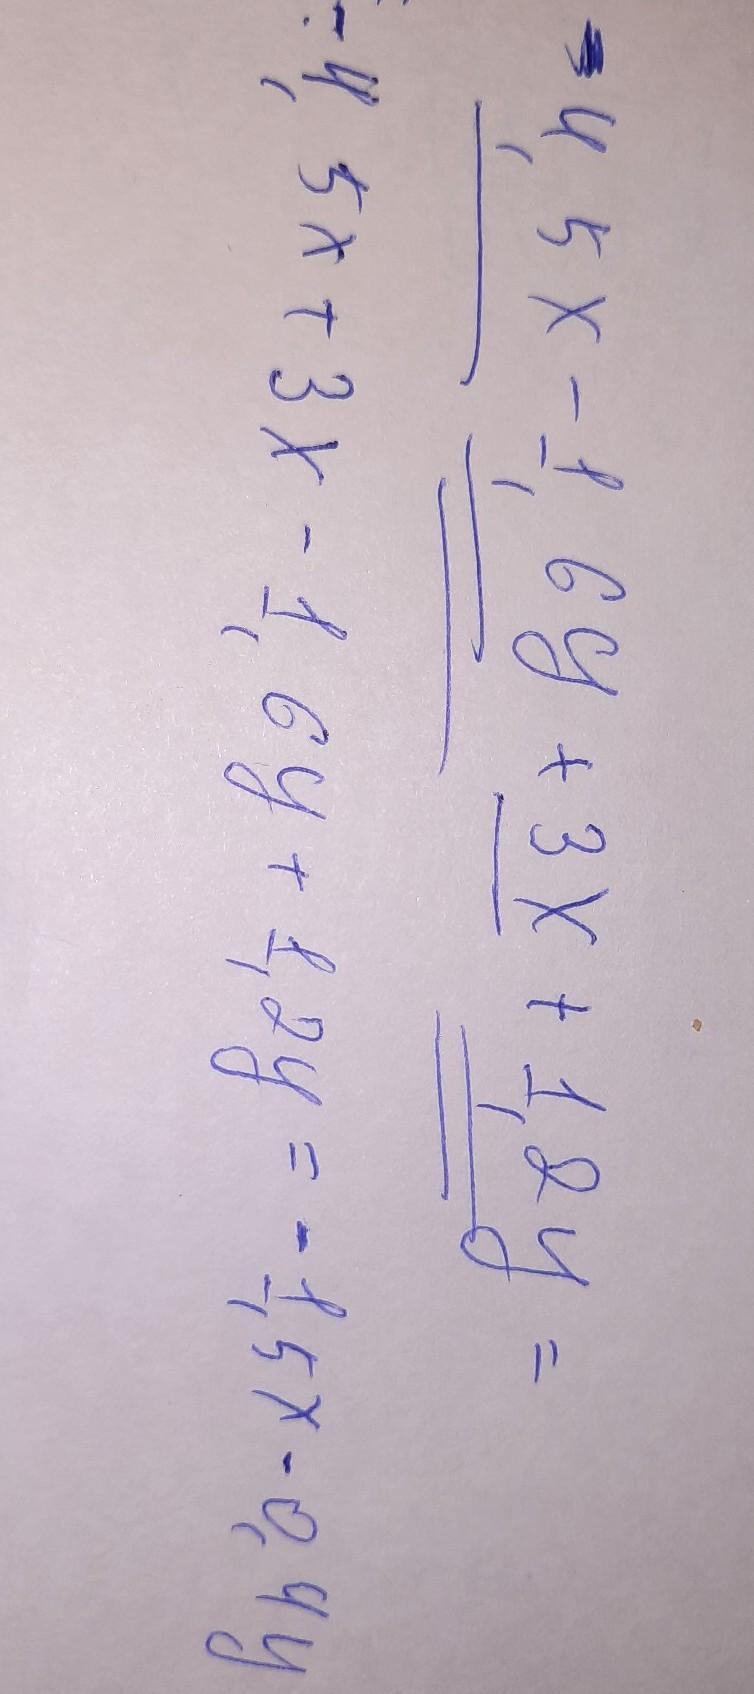 -4,5x-1,6y+3x+1,2y=
=-4,5x+3x-1,6y+1,2y=-1,5x-0,4y